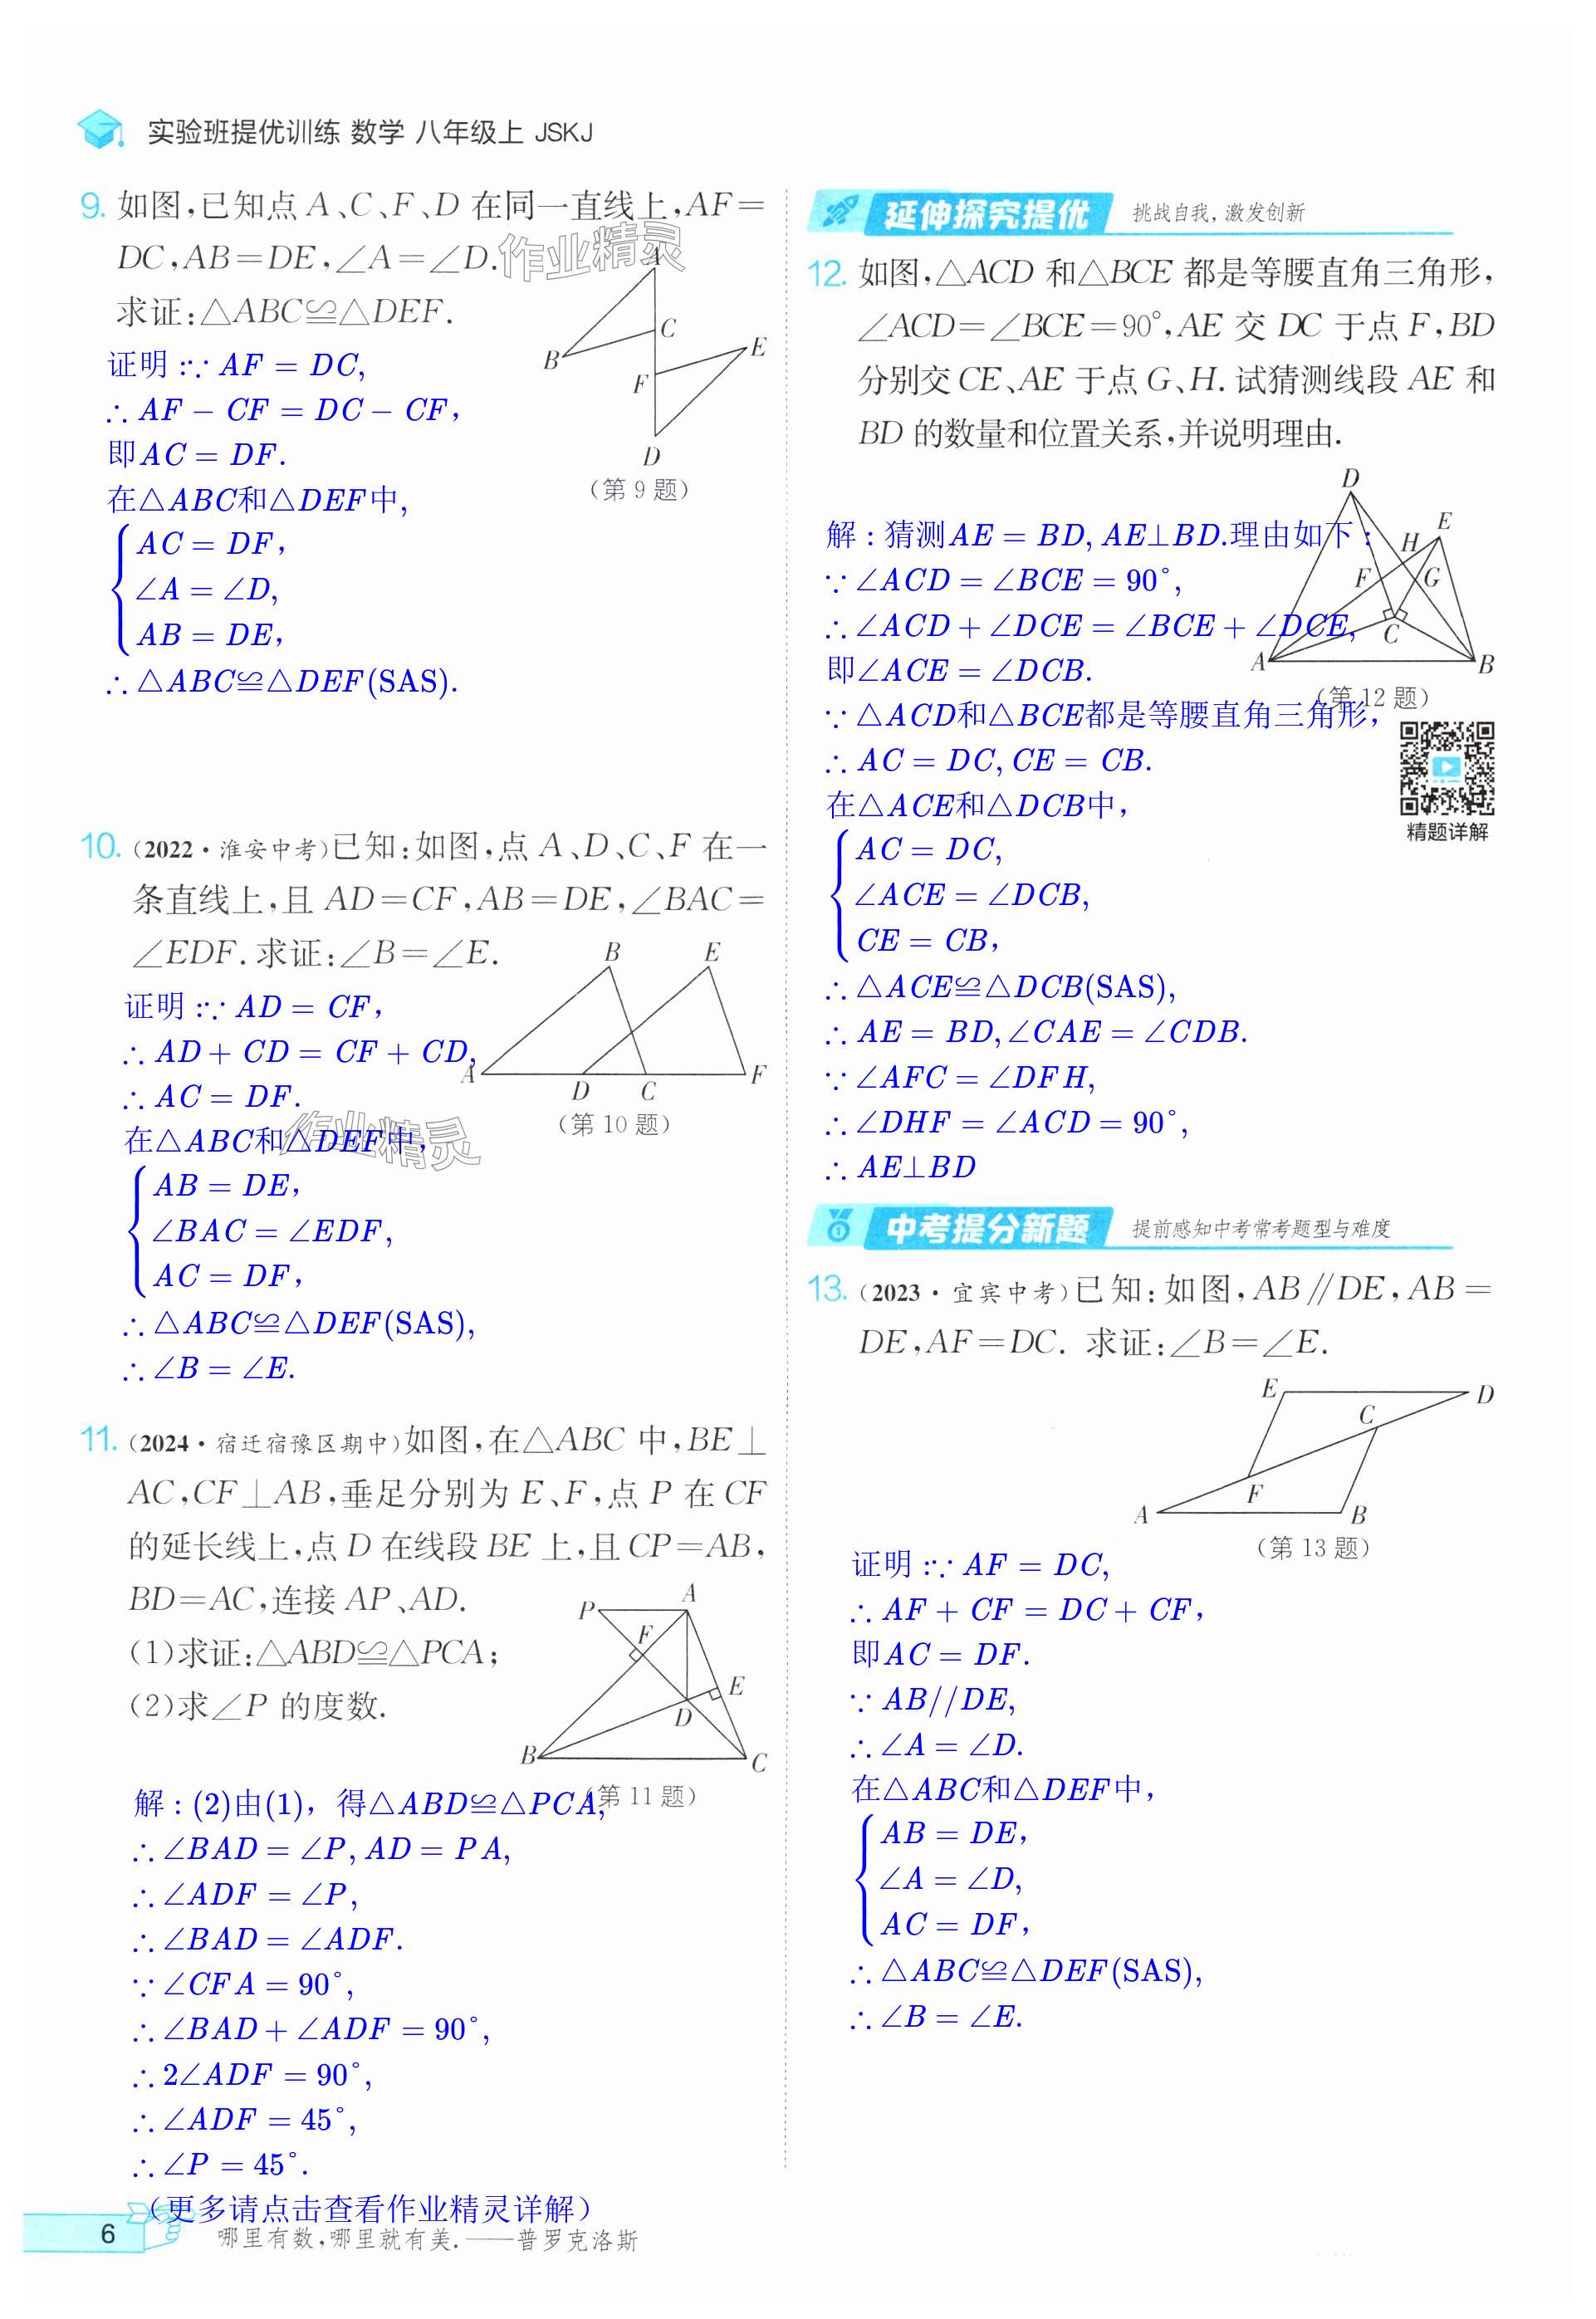 实验班提优训练 数学 八年级上 JSKJ
9. 如图,已知点 A、C、F、D 在同一直线上,AF=
DC,AB=DE,∠A=∠D.
求证:△ABC≌△DEF.
作业精灵
证明:∵AF = DC,
∴AF − CF = DC − CF,
即AC = DF.
在△ABC和△DEF中,
AC = DF,
∠A = ∠D,
AB = DE,
∴△ABC≌△DEF(SAS).
A
C
B
E
F
D
(第 9 题)
10. (2022·淮安中考)已知:如图,点 A、D、C、F 在一
条直线上,且 AD=CF,AB=DE,∠BAC=
∠EDF.求证:∠B=∠E.
证明:∵AD = CF,
∴AD + CD = CF + CD,
∴AC = DF.
在△ABC和△DEF中,
AB = DE,
∠BAC = ∠EDF,
AC = DF,
∴△ABC≌△DEF(SAS),
∴∠B = ∠E.
B
E
A
D
C
F
(第 10 题)
作业精灵
11. (2024·宿迁宿豫区期中)如图,在△ABC 中,BE⊥
AC,CF⊥AB,垂足分别为 E、F,点 P 在 CF
的延长线上,点 D 在线段 BE 上,且 CP=AB,
BD=AC,连接 AP、AD.
(1)求证:△ABD≌△PCA;
(2)求∠P 的度数.
P
A
F
E
D
B
C
(第 11 题)
解:(2)由(1),得△ABD≌△PCA,
∴∠BAD = ∠P, AD = PA,
∴∠ADF = ∠P,
∴∠BAD = ∠ADF.
∵∠CFA = 90°,
∴∠BAD + ∠ADF = 90°,
∴2∠ADF = 90°,
∴∠ADF = 45°,
∴∠P = 45°.
(更多请点击查看作业精灵详解)
6
哪里有数,哪里就有美.——普罗克洛斯
延伸探究提优 挑战自我,激发创新
12. 如图,△ACD 和△BCE 都是等腰直角三角形,
∠ACD=∠BCE=90°,AE 交 DC 于点 F,BD
分别交 CE、AE 于点 G、H.试猜测线段 AE 和
BD 的数量和位置关系,并说明理由.
解:猜测AE = BD, AE⊥BD.理由如下:
∵∠ACD = ∠BCE = 90°,
∴∠ACD + ∠DCE = ∠BCE + ∠DCE,
即∠ACE = ∠DCB.
∵△ACD和△BCE都是等腰直角三角形,
∴AC = DC, CE = CB.
在△ACE和△DCB中,
AC = DC,
∠ACE = ∠DCB,
CE = CB,
∴△ACE≌△DCB(SAS),
∴AE = BD, ∠CAE = ∠CDB.
∵∠AFC = ∠DFH,
∴∠DHF = ∠ACD = 90°,
∴AE⊥BD
D
H
E
F
G
C
A
B
(第 12 题)
精题详解
中考提分新题 提前感知中考常考题型与难度
13. (2023·宜宾中考)已知:如图,AB∥DE,AB=
DE,AF=DC. 求证:∠B=∠E.
E
D
C
F
A
B
(第 13 题)
证明:∵AF = DC,
∴AF + CF = DC + CF,
即AC = DF.
∵AB//DE,
∴∠A = ∠D.
在△ABC和△DEF中,
AB = DE,
∠A = ∠D,
AC = DF,
∴△ABC≌△DEF(SAS),
∴∠B = ∠E.